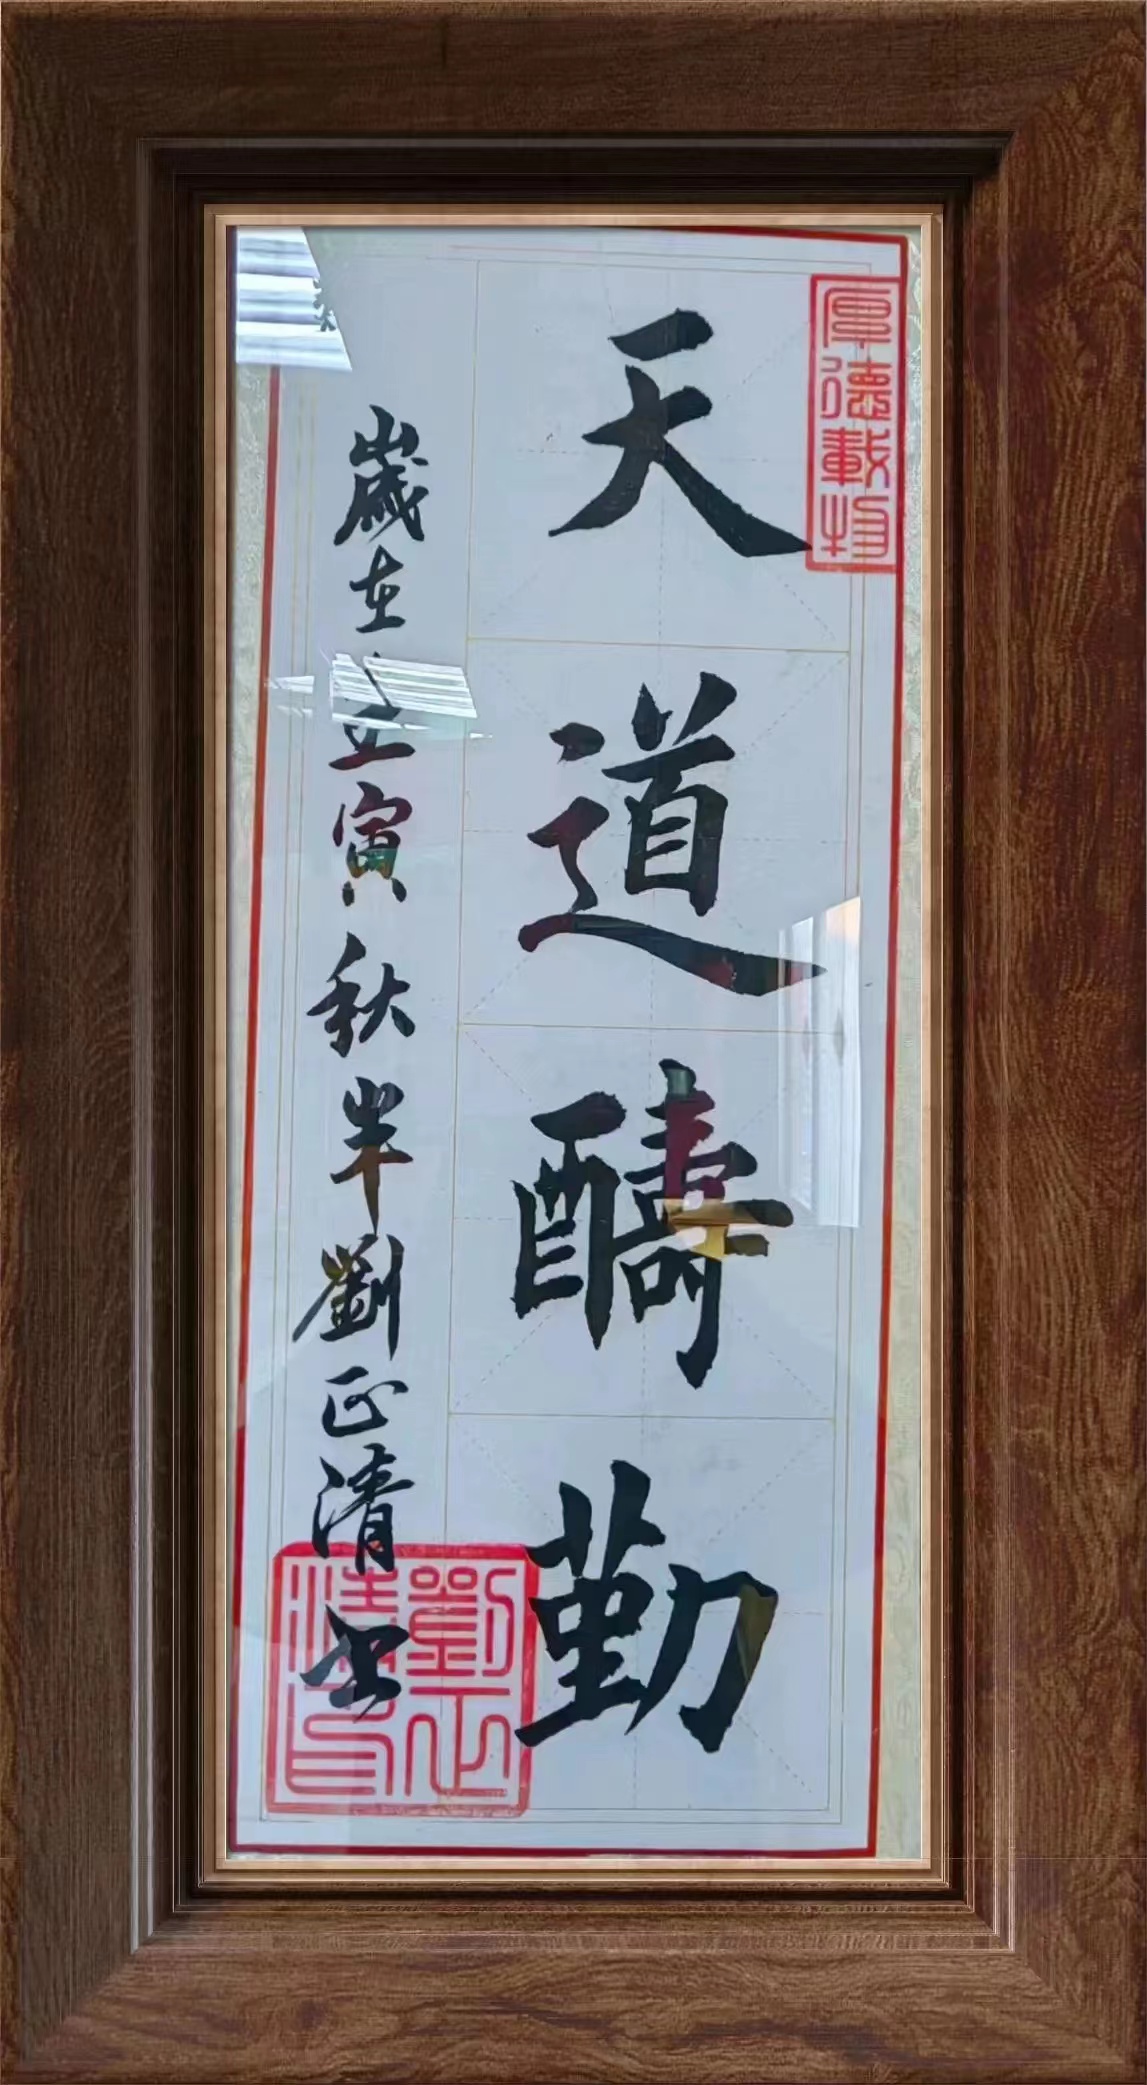 厚德載物
天道酬勤
歲在壬寅秋半劉正清書
劉正清印